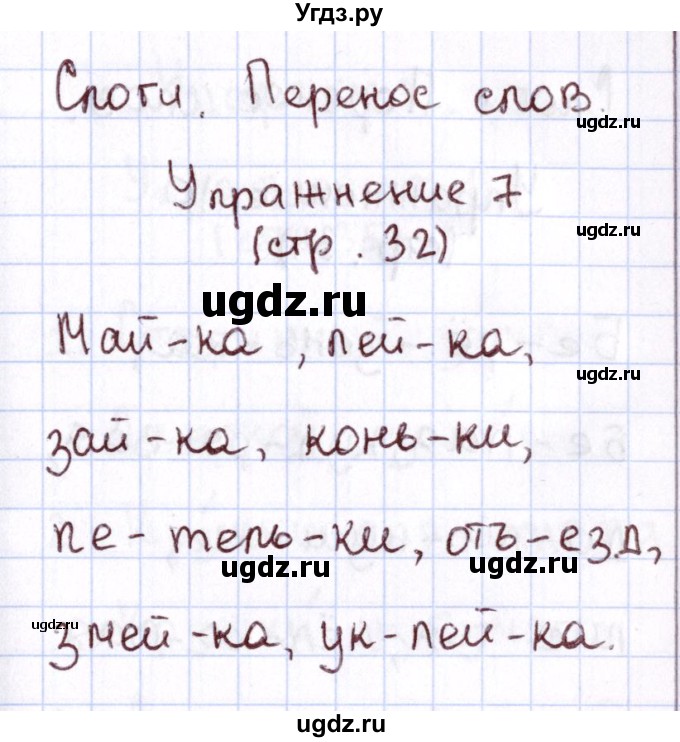 Угдз.ру
Слоги. Перенос слов.
ugdz.ru
Упражнение 7
ugdz.ru
(стр. 32)
ugdz.ru
Май-ка, лей-ка,
ugdz.ru
зай-ка, конь-ки,
пе-тель-ки, отъ-езд,
ugdz.ru
ugdz.ru
ugdz.ru
змей-ка, ук-лей-ка.
ugdz.ru